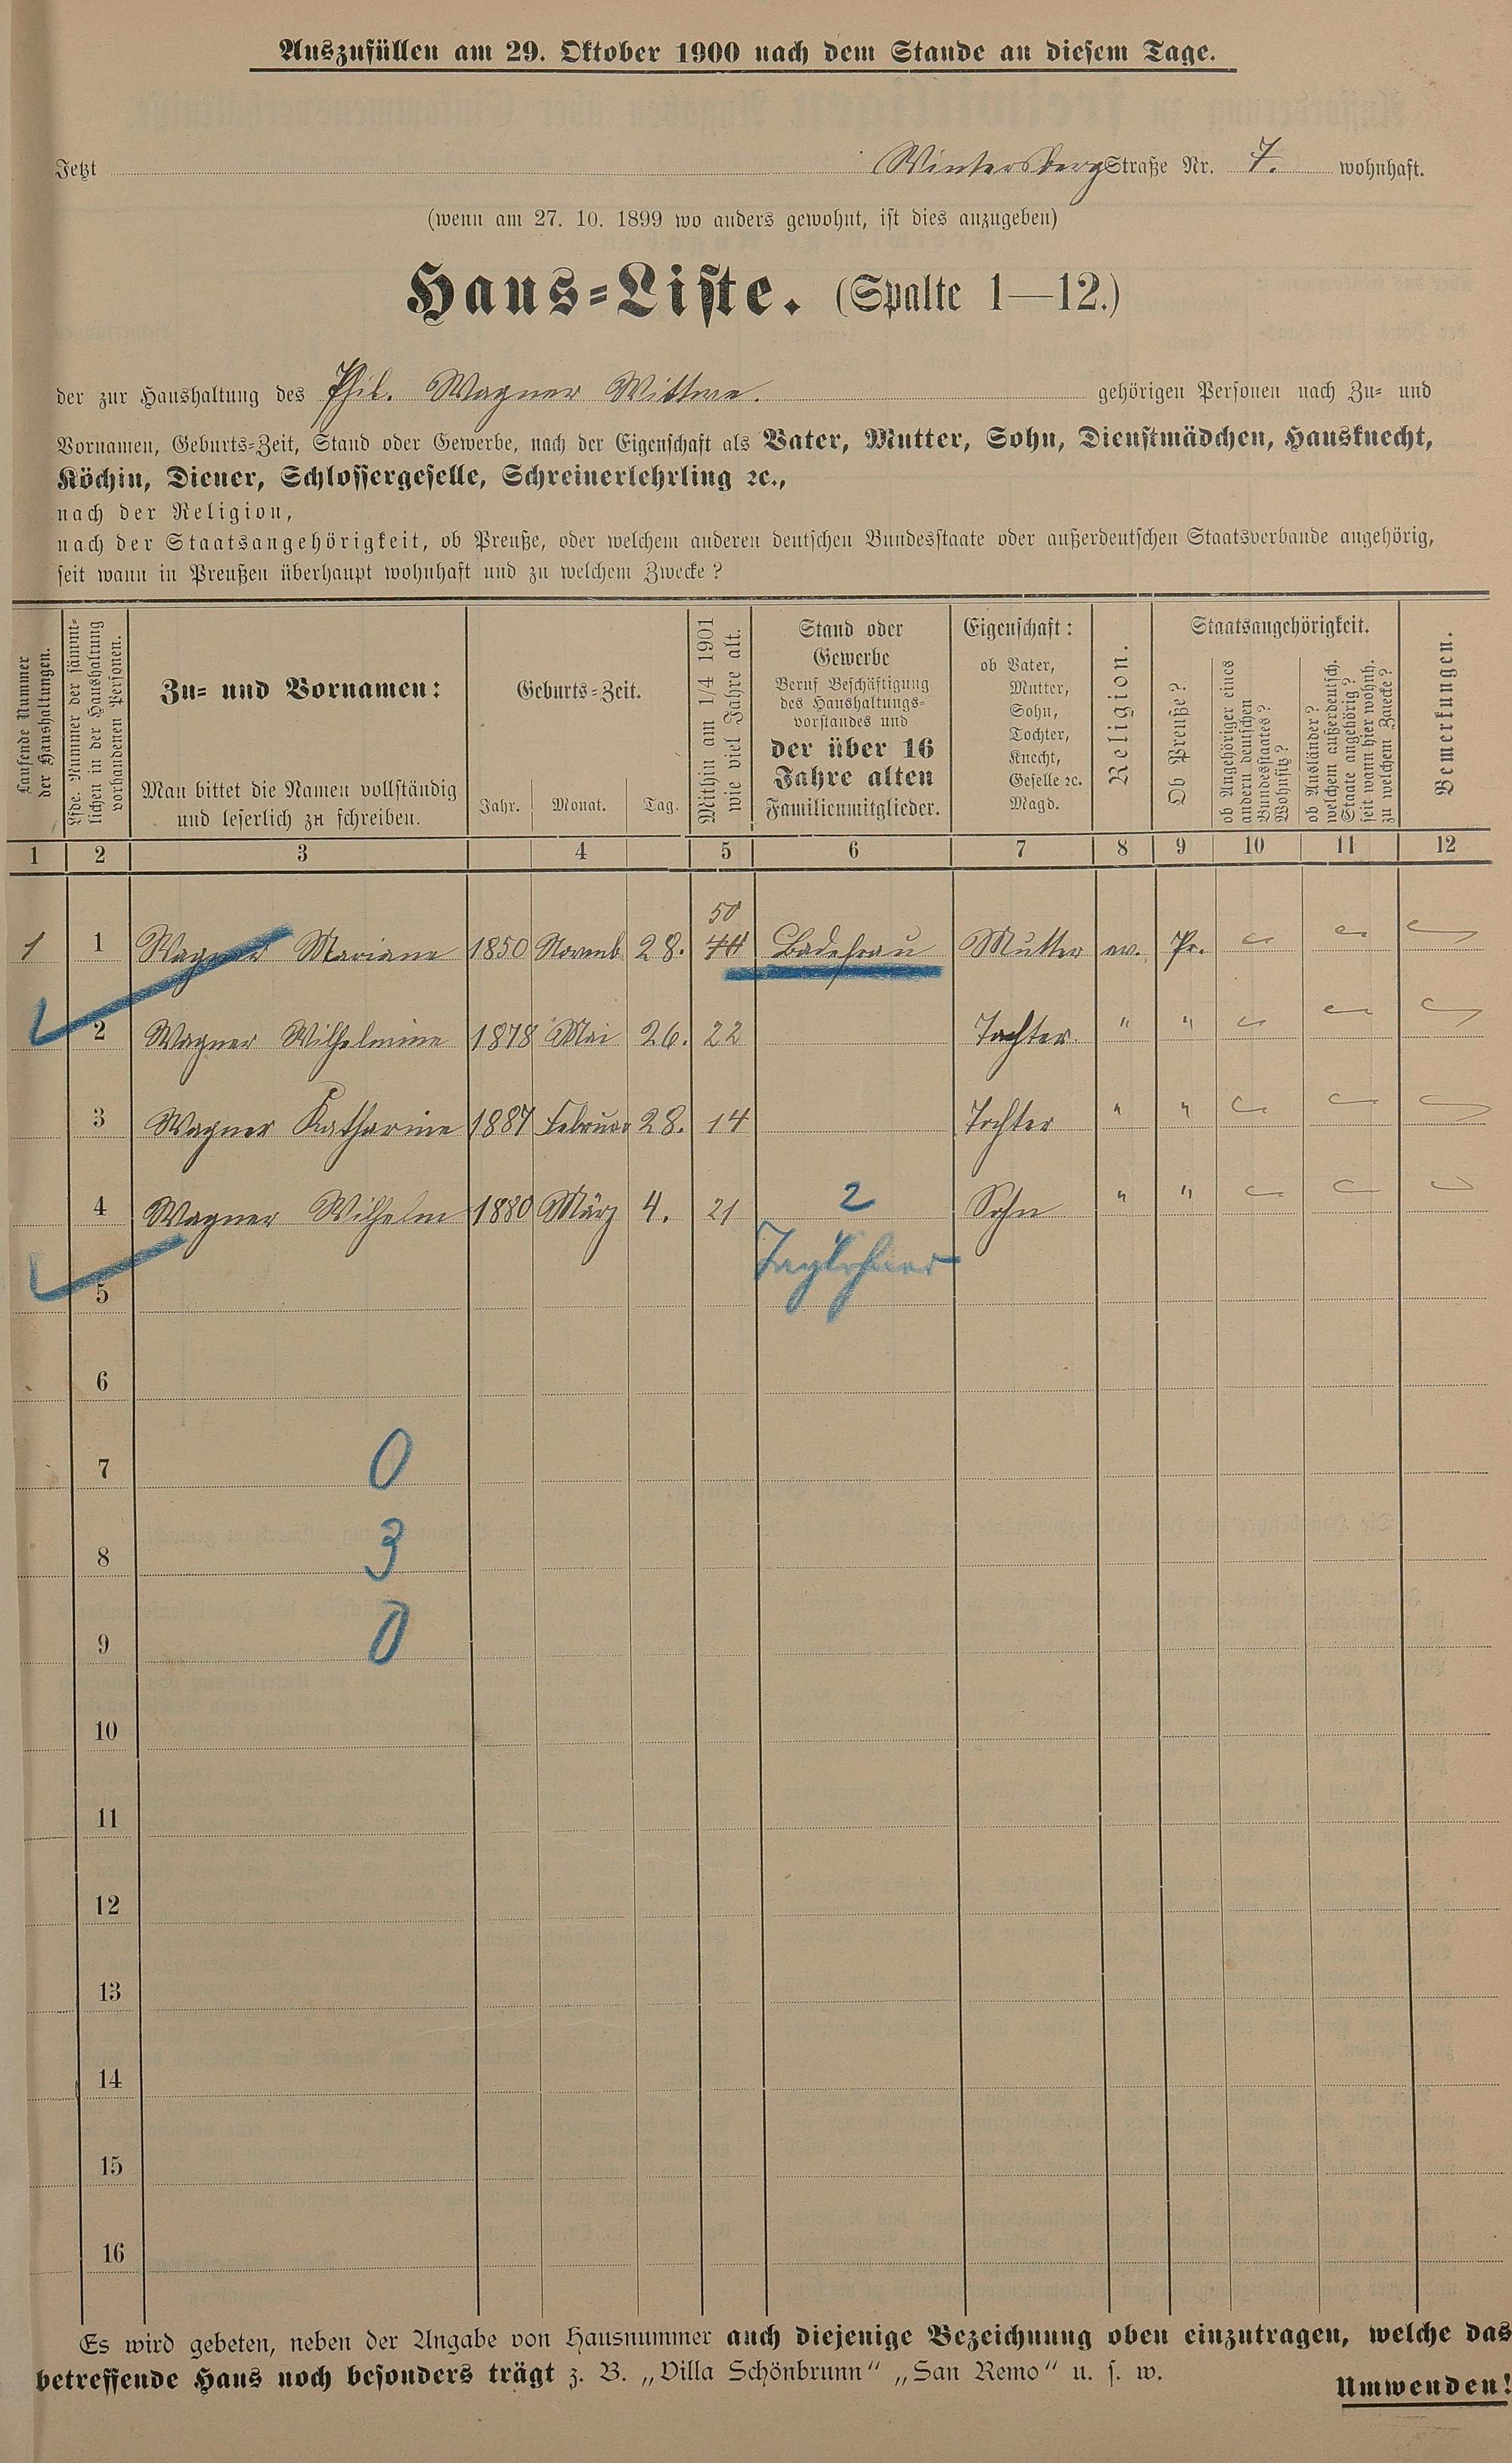 Auszufüllen am 29. Oktober 1900 nach dem Stande an diesem Tage.
Jetzt Wintersberg Straße Nr. 7. wohnhaft.
(wenn am 27. 10. 1899 wo anders gewohnt, ist dies anzugeben)
Haus-Liste. (Spalte 1—12.)
der zur Haushaltung des Phil. Wagner Wittwe. gehörigen Personen nach Zu- und
Vornamen, Geburts-Zeit, Stand oder Gewerbe, nach der Eigenschaft als Vater, Mutter, Sohn, Dienstmädchen, Hausknecht,
Köchin, Diener, Schlossergeselle, Schreinerlehrling ꝛc.,
nach der Religion,
nach der Staatsangehörigkeit, ob Preuße, oder welchem anderen deutschen Bundesstaate oder außerdeutschen Staatsverbande angehörig,
seit wann in Preußen überhaupt wohnhaft und zu welchem Zwecke?
Laufende Nummer
der Haushaltungen.
Lfde. Nummer der sämmt-
lichen in der Haushaltung
vorhandenen Personen.
Zu- und Vornamen:
Man bittet die Namen vollständig
und leserlich zu schreiben.
Geburts-Zeit.
Jahr. Monat. Tag.
Mithin am 1/4 1901
wie viel Jahre alt.
Stand oder
Gewerbe
Beruf Beschäftigung
des Haushaltungs-
vorstandes und
der über 16
Jahre alten
Familienmitglieder.
Eigenschaft:
ob Vater,
Mutter,
Sohn,
Tochter,
Knecht,
Geselle ꝛc.
Magd.
Religion.
Staatsangehörigkeit.
Ob Preuße?
ob Angehöriger eines
andern deutschen
Bundesstaates?
Wohnsitz?
ob Ausländer?
welchem außerdeutsch.
Staate angehörig?
seit wann hier wohnh.
zu welchem Zwecke?
Bemerkungen.
1 2 3 4 5 6 7 8 9 10 11 12
50
1 1 Wagner Mariane 1850 Novemb 28. Badefrau Mutter ev. Pr.
2 Wagner Wilhelmine 1878 Mai 26. 22 Tochter. " "
3 Wagner Katharine 1887 Februar 28. 14 Tochter " "
4 Wagner Wilhelm 1880 März 4. 21 2 Sohn " "
Taglöhner
5
6
7 0
8 3
9 0
10
11
12
13
14
15
16
Es wird gebeten, neben der Angabe von Hausnummer auch diejenige Bezeichnung oben einzutragen, welche das
betreffende Haus noch besonders trägt z. B. „Villa Schönbrunn“ „San Remo“ u. s. w.
Umwenden!